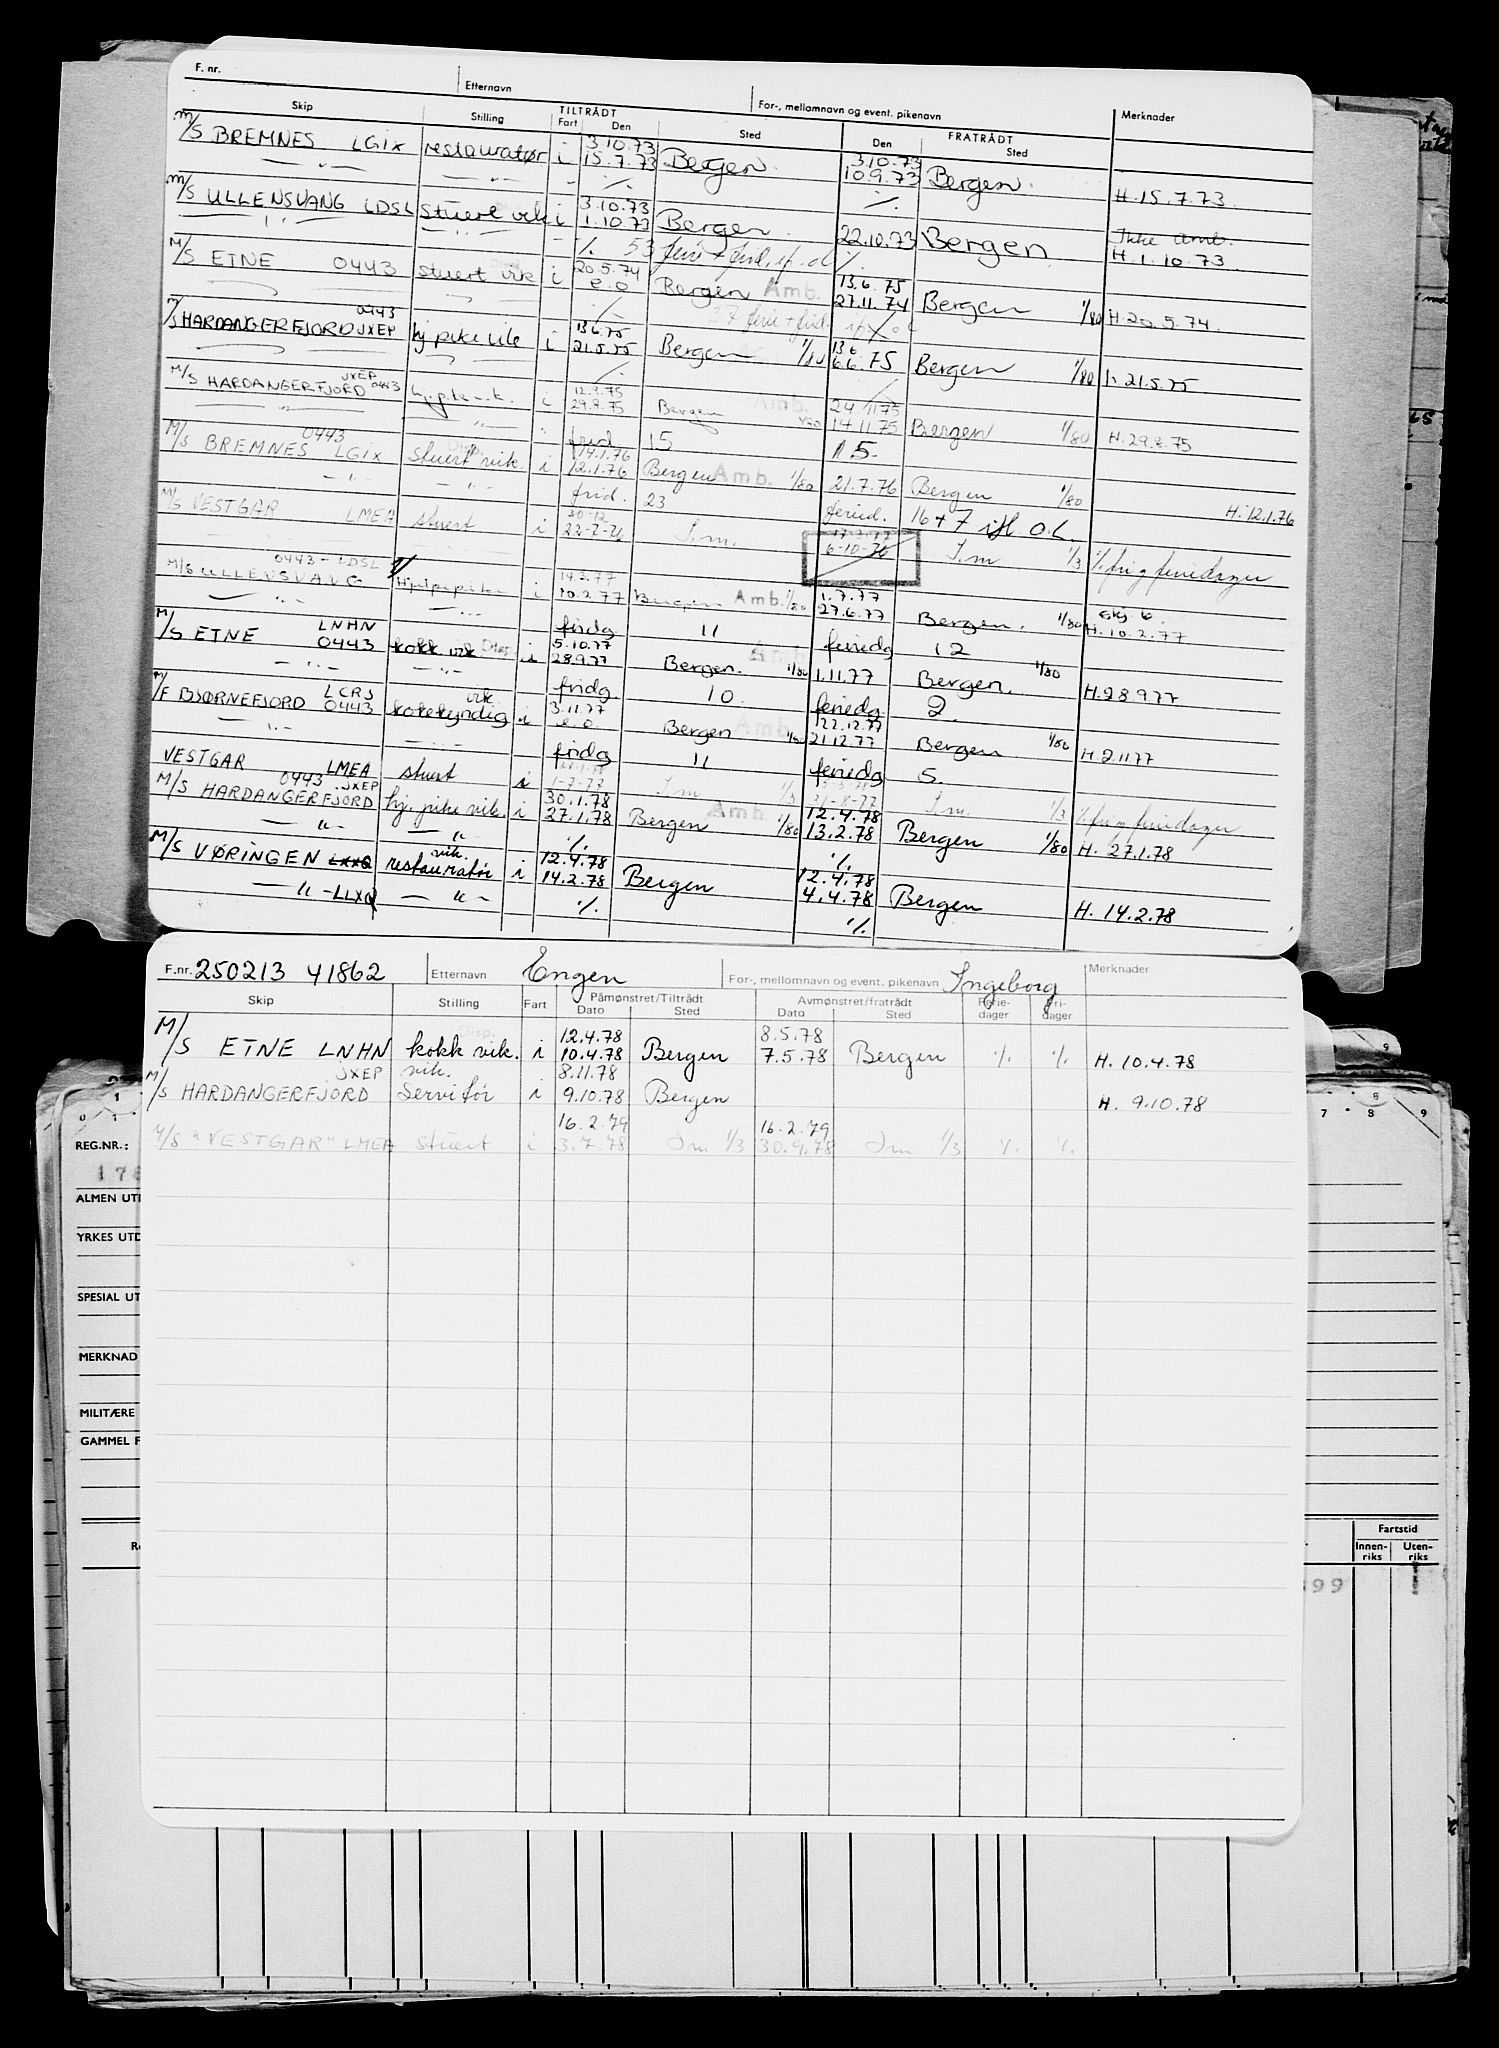 F. nr. Etternavn For-, mellomnavn og event. pikenavn Merknader
TILTRÅDT FRATRÅDT
Skip Stilling Fart Den Sted Den Sted
3.10.73 3.10.73
M/S BREMNES LGIX restauratør i 15.7.73 Bergen. 10.9.73 Bergen. H. 15.7.73.
— " — — " — ./. ./.
3.10.73 Ikke amb.
M/S ULLENSVANG LDSL stuert vik i 1.10.73 Bergen. 22.10.73 Bergen H. 1.10.73.
./. 53 ferie + frid. ./.
20.5.74 13.6.75
M/S ETNE 0443 stuert vik i e.o Bergen Amb. 27.11.74 Bergen 1/80 H. 20.5.74.
./. 37 ferie + frid.
0443 13.6.75 13.6
M/S HARDANGERFJORD JXEP hj pike vik i 21.5.75 Bergen 1/80 6.6.75 Bergen 1/80 H. 21.5.75
./.
JXEP 24.11.75
M/S HARDANGERFJORD 0443 hj.pike v.k. i 29.8.75 Bergen Amb. 1/80 14.11.75 Bergen 1/80 H. 29.8.75
— " — — " — frid. 15 15.
0443 14.1.76
M/S BREMNES LGIX stuert vik. i 12.1.76 Bergen Amb. 1/80 21.7.76 Bergen 1/80 H. 12.1.76
— " — — " — frid. 23 feried. 16 + 7
M/S VESTGAR LMEA stuert i 22-7-76 I.m. 6-10-76 I.m 1/3 % fri og feriedager
0443 - LDSL 14.3.77 1.7.77
M/S ULLENSVANG Hjelpepike i 10.2.77 Bergen Amb. 1/80 27.6.77 Bergen. 1/80 H. 10.2.77
— " — — " — fridg 11 feriedg 12
LNHN 5.10.77
M/S ETNE 0443 kokk vik Disp. i 28.9.77 Bergen. Amb. 1/80 1.11.77 Bergen. 1/80 H. 28.9.77
— " — — " — fridg. 10 feriedg 2
LCRJ vik 3.11.77 22.12.77
M/F BJØRNEFJORD 0443 kokekyndig i e.o. Bergen Amb. 1/80 21.12.77 Bergen 1/80 H. 2.11.77
— " — — " — fridg 11 feriedg 5.
VESTGAR LMEA stuert i 1-7-77 I m 1/3 I m. 1/3 % fri og feriedager
0443 JXEP 30.1.78 12.4.78
M/S HARDANGERFJORD hj. pike vik. i 27.1.78 Bergen Amb. 1/80 13.2.78 Bergen 1/80 H. 27.1.78
— " — — " — ./. ./.
vik. 12.4.78 12.4.78
M/S VØRINGEN restauratør i 14.2.78 Bergen 4.4.78 Bergen H. 14.2.78
— " — LLXQ — " — ./. ./.
F.nr. 250213 41862 Etternavn Engen For-, mellomnavn og event. pikenavn Ingeborg Merknader
Skip Stilling Fart Påmønstret/Tiltrådt Avmønstret/fratrådt Ferie- Fri-
Dato Sted Dato Sted dager dager
Disp. 12.4.78 8.5.78
M/S ETNE LNHN kokk vik. i 10.4.78 Bergen 7.5.78 Bergen ./. ./. H. 10.4.78
JXEP vik. 8.11.78
M/S HARDANGERFJORD Servitør i 9.10.78 Bergen H. 9.10.78
16.2.79 16.2.79
M/S "VESTGAR" LMEA stuert i 3.7.78 I m 1/3 30.9.78 I m 1/3 ./. ./.
REG.NR.:
178
ALMEN UTD
YRKES UTD
SPESIAL UT
MERKNAD
MILITÆRE
GAMMEL F
Fartstid
Innen- Uten-
riks riks
99